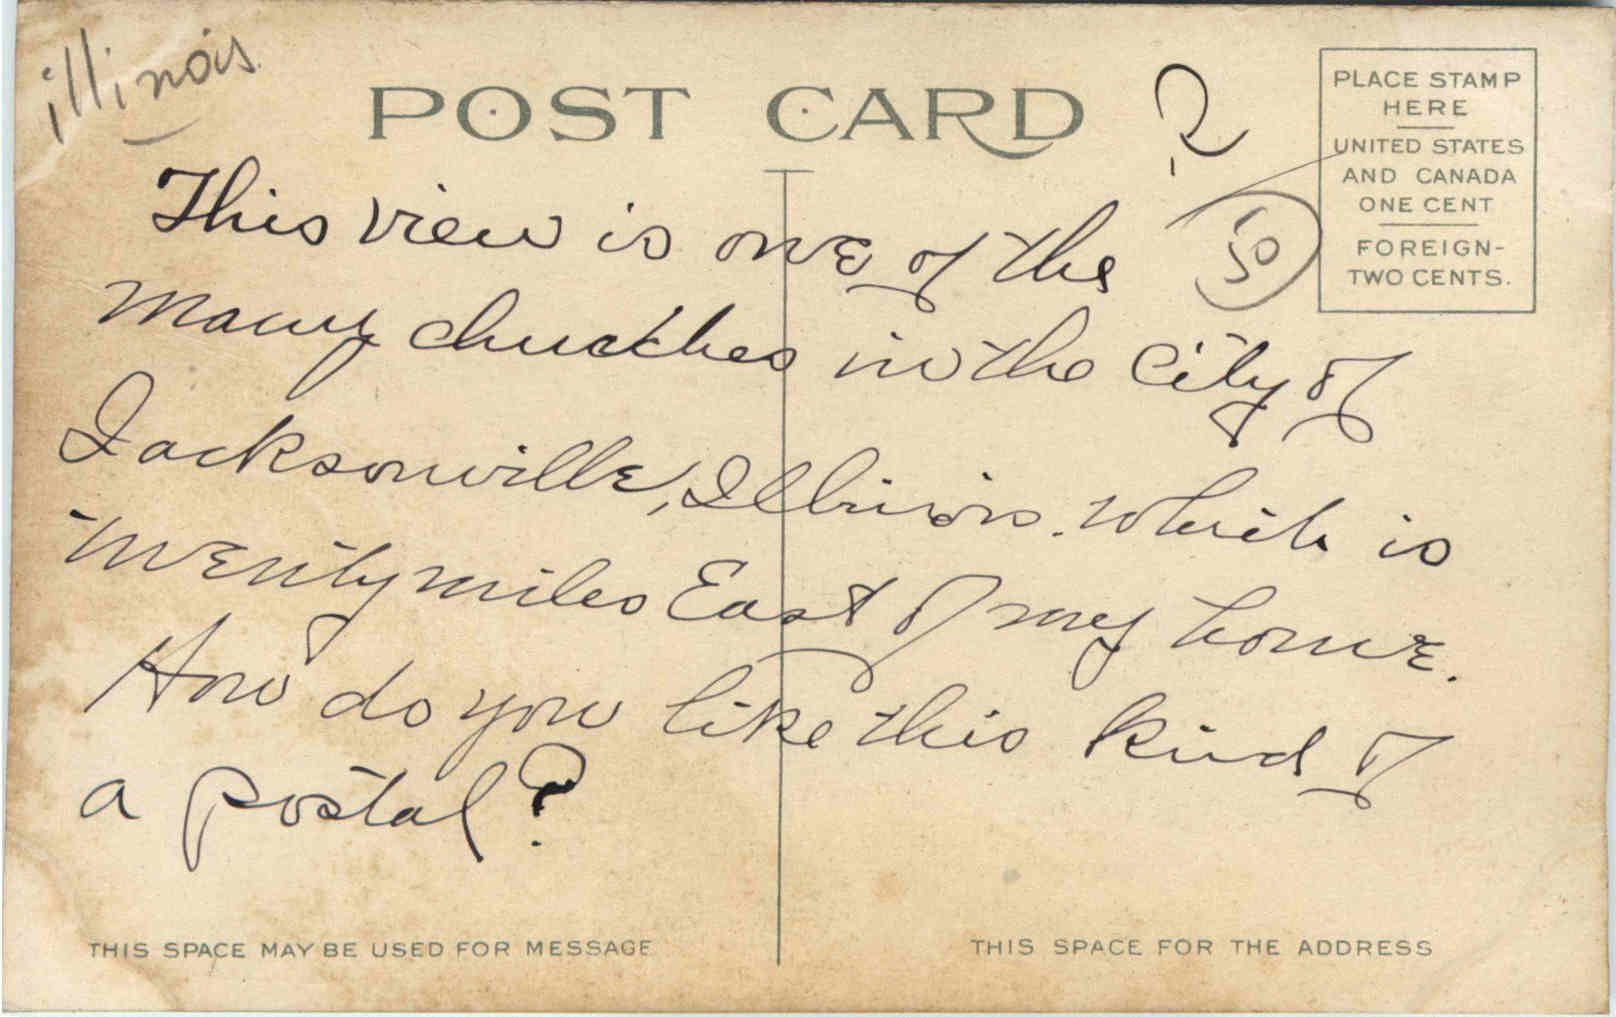 illinois
POST CARD
?
PLACE STAMP
HERE
UNITED STATES
AND CANADA
ONE CENT
FOREIGN-
TWO CENTS.
This view is one of the
many churches in the City of
Jacksonville, Illinois. which is
twenty miles East of my home.
How do you like this kind of
a postal?
THIS SPACE MAY BE USED FOR MESSAGE
THIS SPACE FOR THE ADDRESS